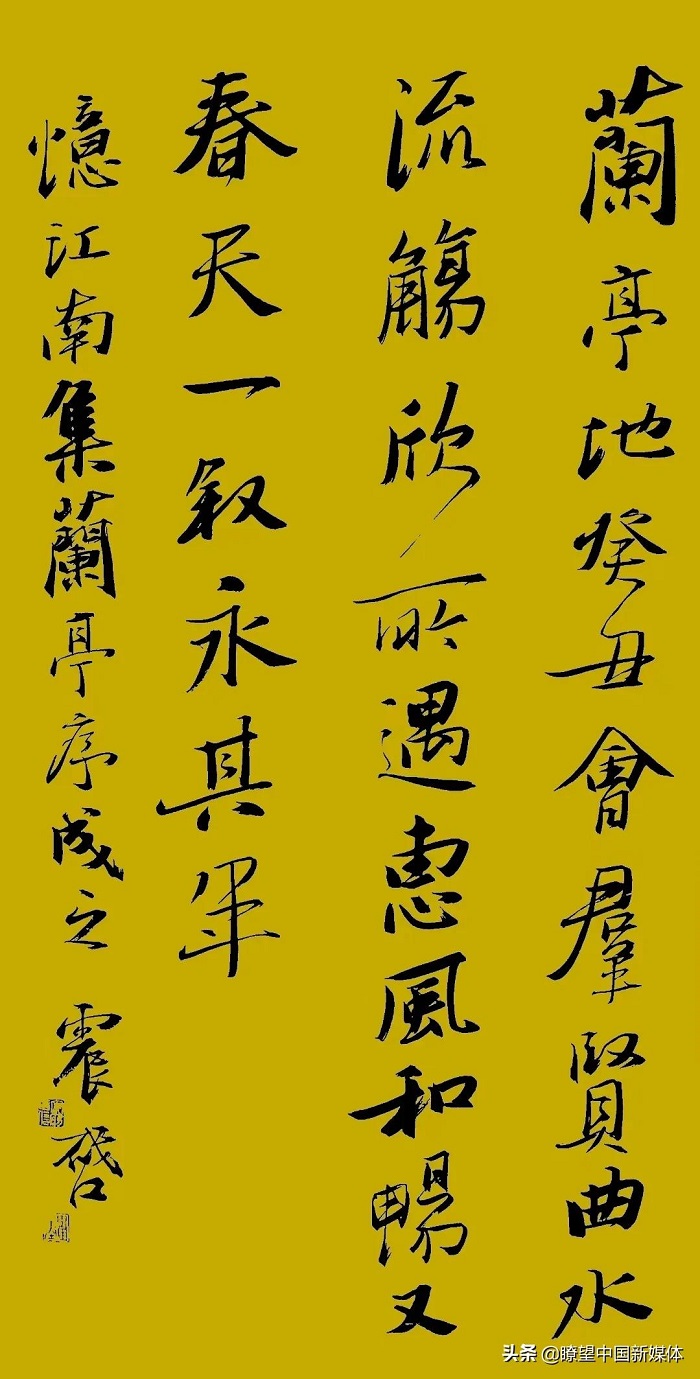 蘭亭地癸丑會羣賢曲水
流觴欣所遇惠風和暢又
春天一叙永其年
憶江南集蘭亭序成之 震啓
头条 @瞭望中国新媒体